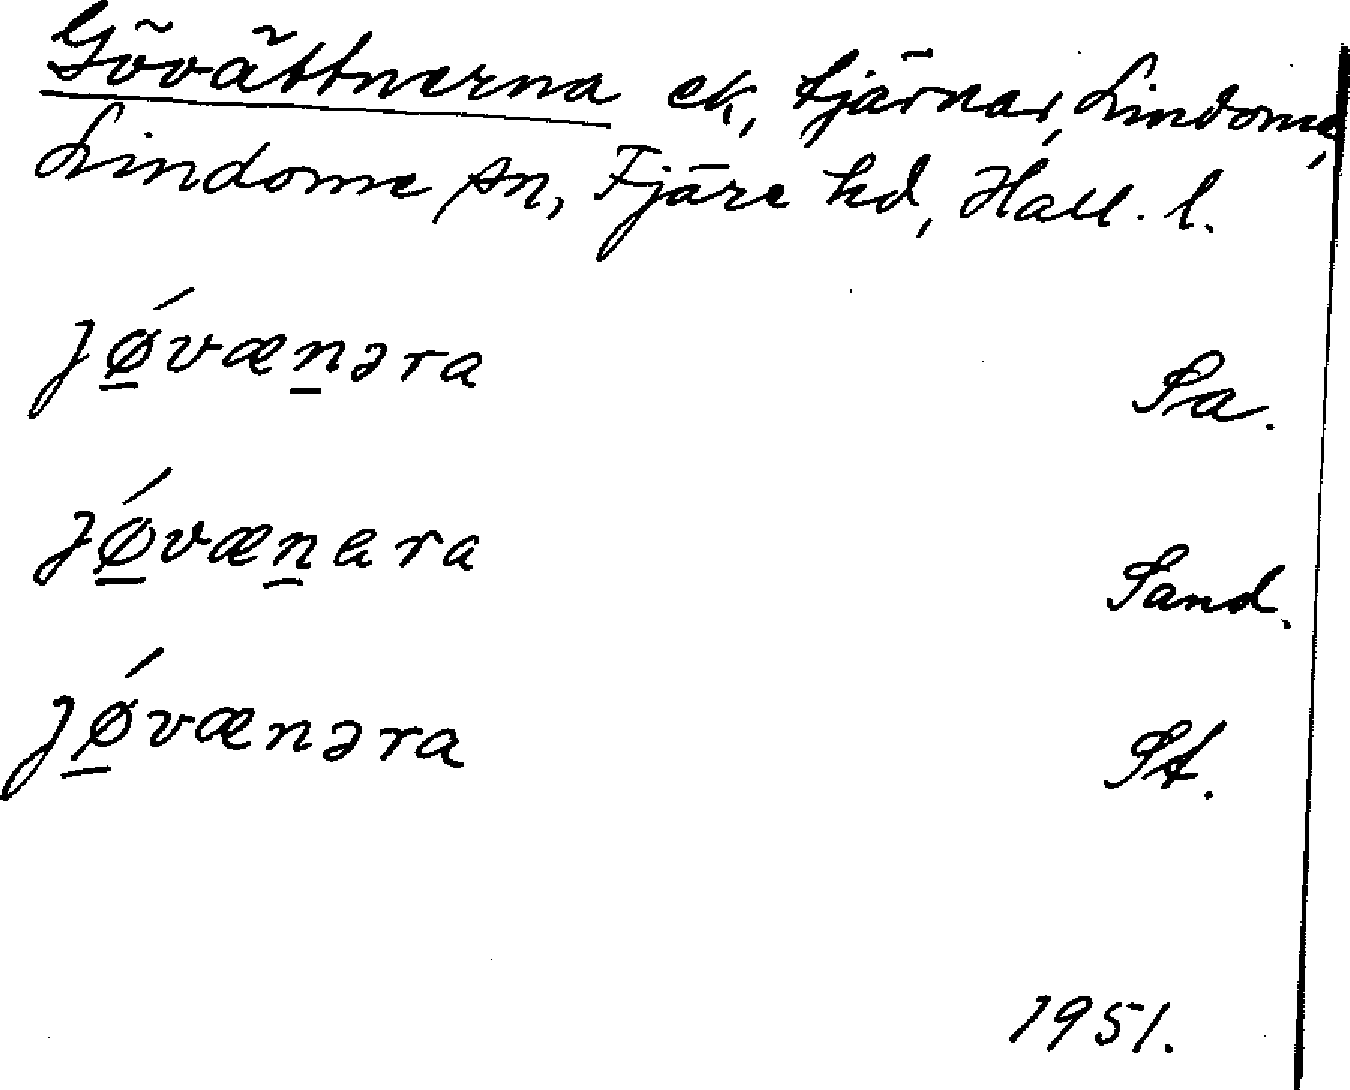 Gövättnerna ek, tjärnar, Lindome,
Lindome sn, Fjäre hd, Hall. l.
jǿ̲væn̲əra Sa.
jǿ̲væn̲ara Sand.
jǿ̲vænəra St.
1951.